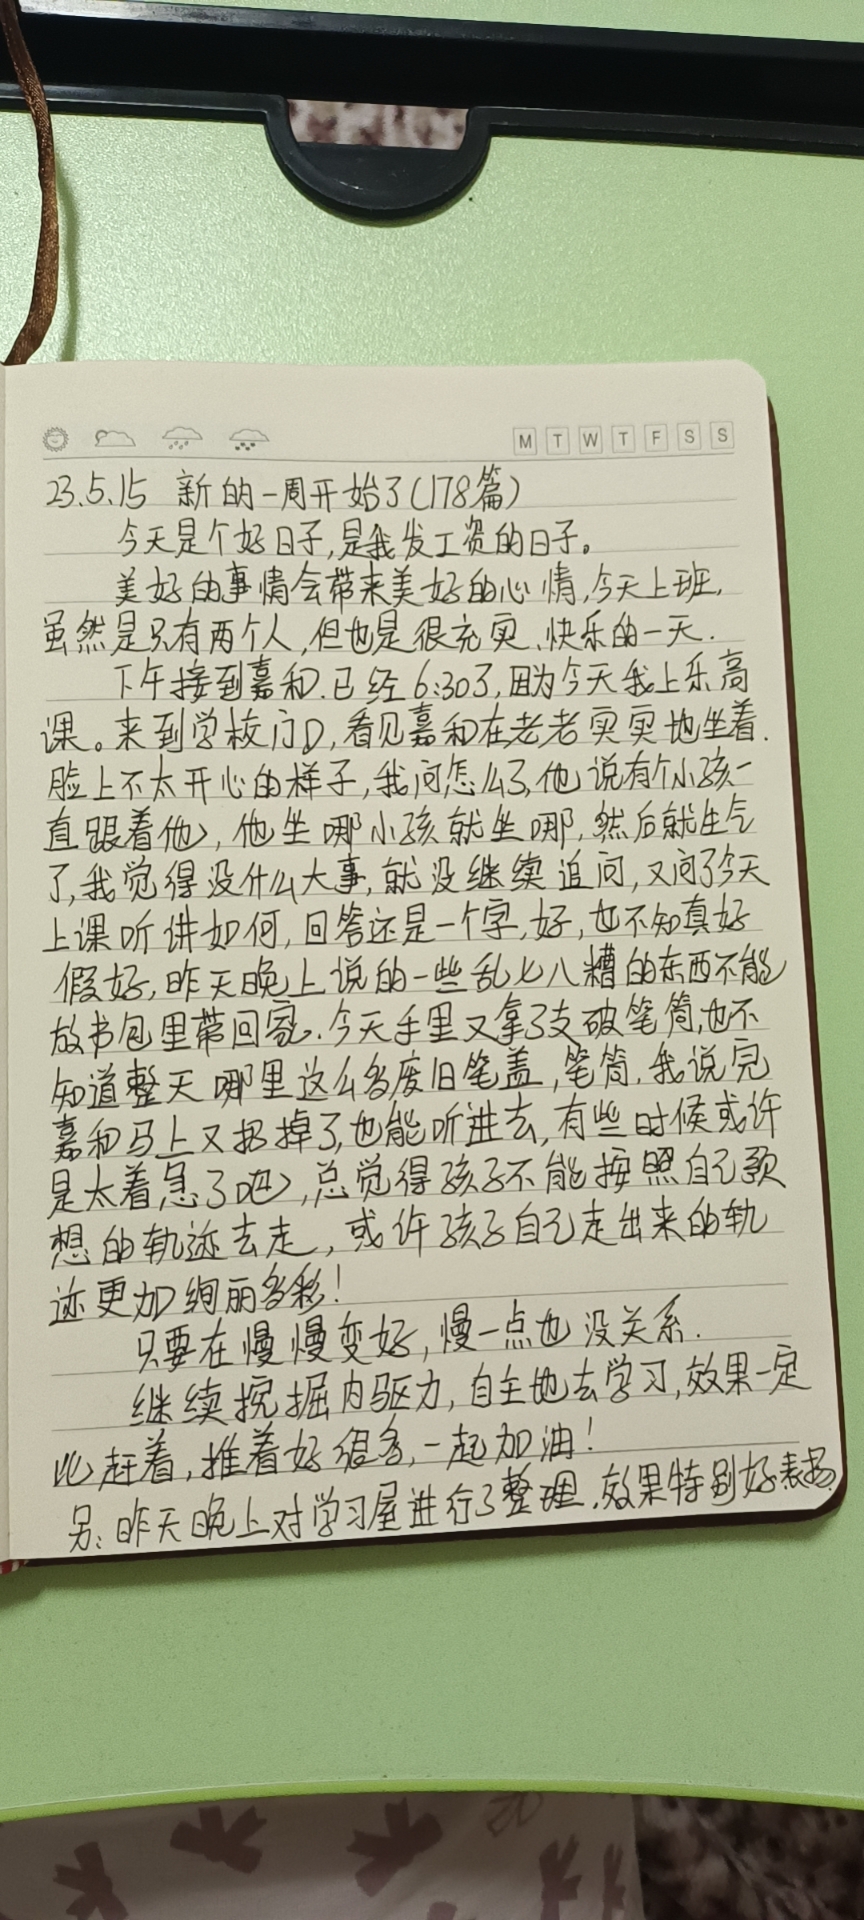 M T W T F S S
23.5.15 新的一周开始了(178篇)
今天是个好日子,是我发工资的日子。
美好的事情会带来美好的心情,今天上班,
虽然是只有两个人,但也是很充实、快乐的一天.
下午接到嘉和.已经6:30了,因为今天我上乐高
课。来到学校门口,看见嘉和在老老实实地坐着.
脸上不太开心的样子,我问怎么了,他说有个小孩一
直跟着他,他坐哪小孩就坐哪,然后就生气
了,我觉得没什么大事,就没继续追问,又问了今天
上课听讲如何,回答还是一个字,好,也不知真好
假好,昨天晚上说的一些乱七八糟的东西不能
放书包里带回家.今天手里又拿了支破笔筒,也不
知道整天哪里这么多废旧笔盖,笔筒.我说完
嘉和马上又扔掉了,也能听进去,有些时候或许
是太着急了吧,总觉得孩子不能按照自己预
想的轨迹去走,或许孩子自己走出来的轨
迹更加绚丽多彩!
只要在慢慢变好,慢一点也没关系.
继续挖掘内驱力,自主地去学习,效果一定
比赶着,推着好很多,一起加油!
另:昨天晚上对学习屋进行了整理.效果特别好表扬